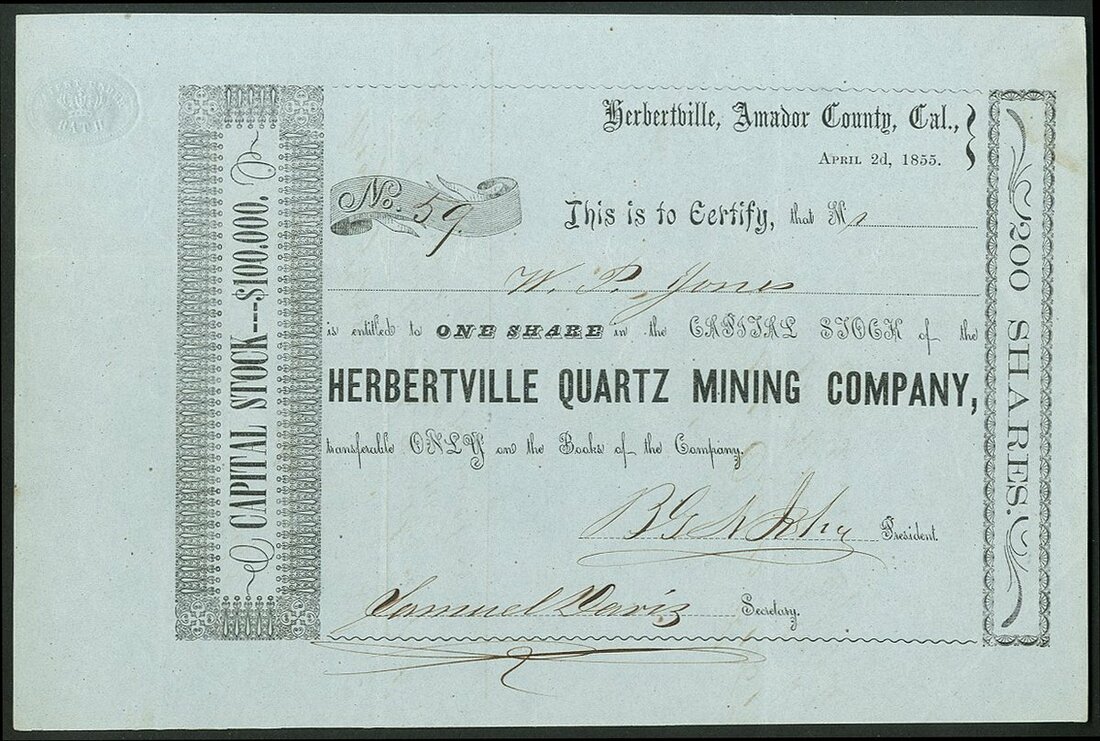 Herbertville, Amador County, Cal.,
April 2d, 1855.
No. 59
This is to Certify, that Mr
W. P. Jones
is entitled to ONE SHARE in the CAPITAL STOCK of the
HERBERTVILLE QUARTZ MINING COMPANY,
transferable ONLY on the Books of the Company.
President.
Samuel Davis Secretary.
CAPITAL STOCK---$100,000,
200 SHARES.
BATH